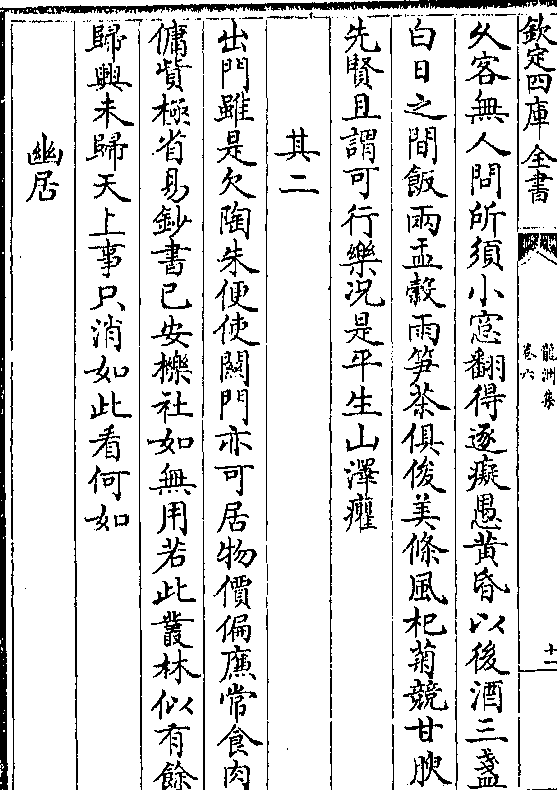 欽定四庫全書
龍洲集
卷六
十二
久客無人問所須小窻翻得逐癡愚黄昏以後酒三盞
白日之間飯兩盂穀雨笋茶俱俊美條風杞菊競甘腴
先賢且謂可行樂况是平生山澤癯
其二
出門雖是欠陶朱便使闗門亦可居物價偏廉常食肉
傭貲極省易鈔書已安櫟社如無用若此叢林似有餘
歸興未歸天上事只消如此看何如
幽居